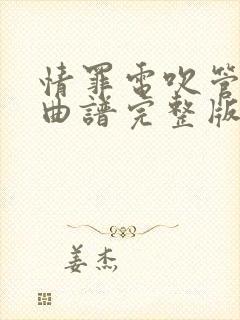 情罪电吹管
曲谱完整版
姜杰